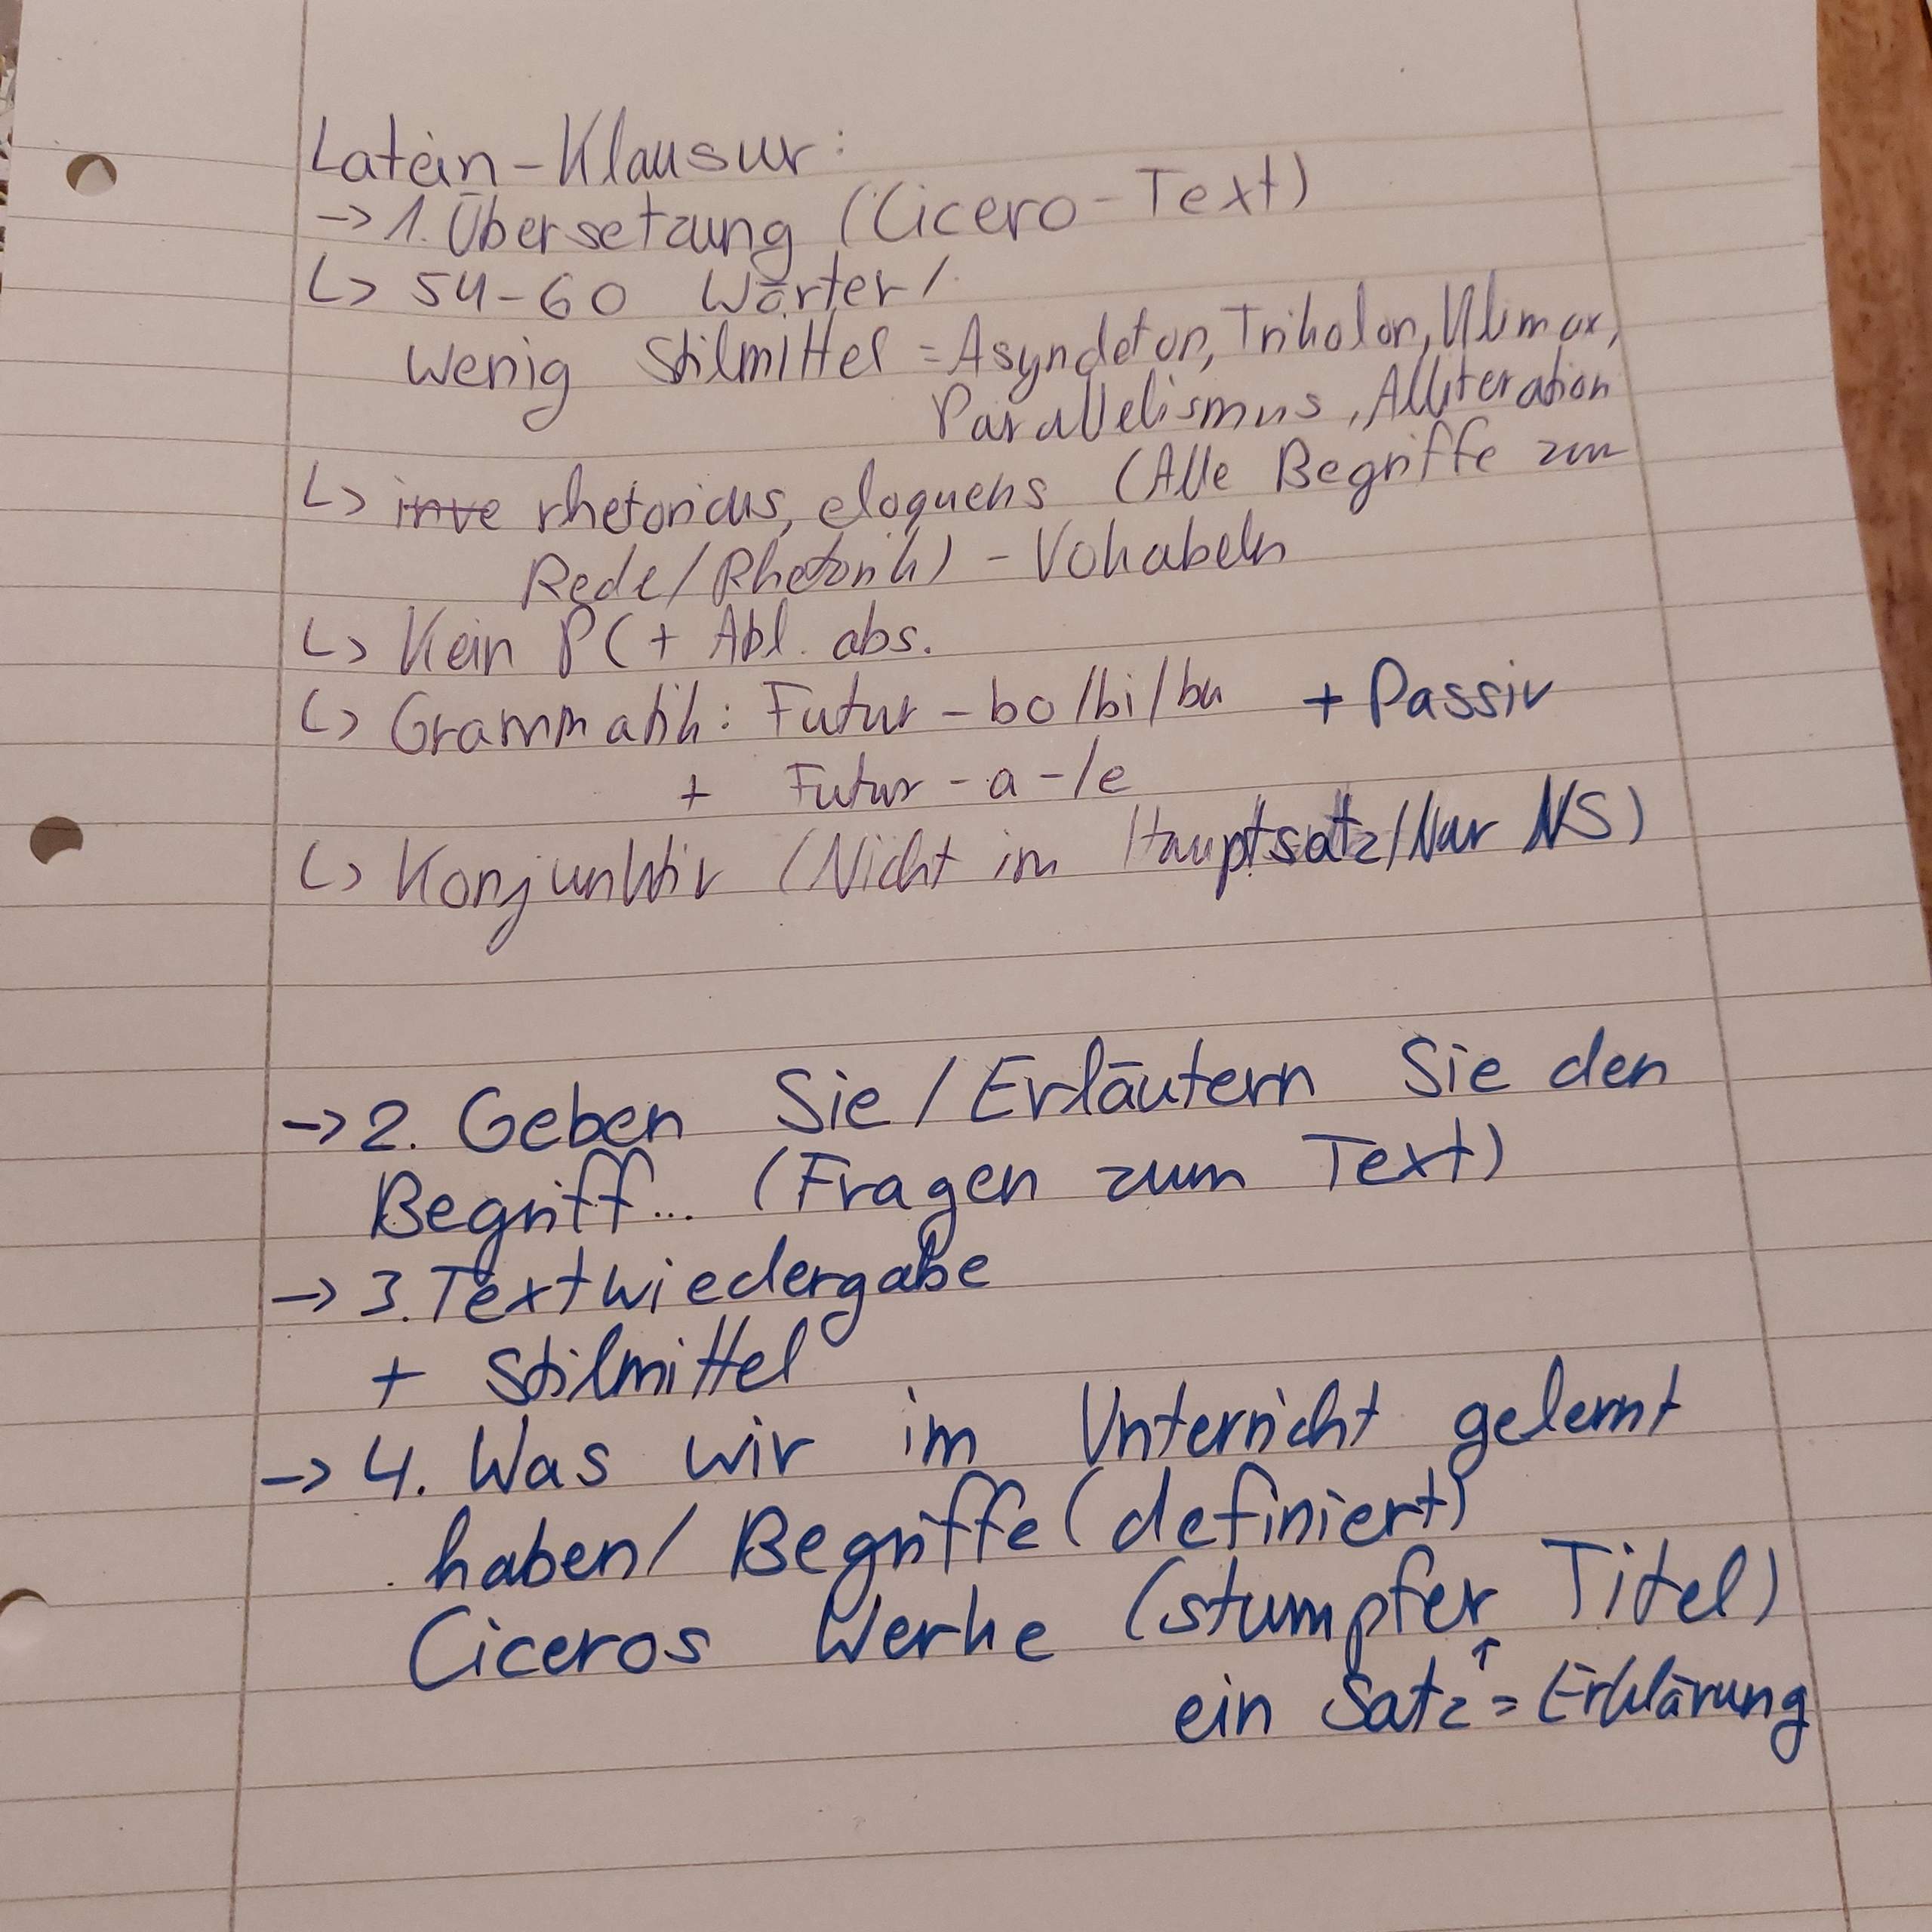 Latein-Klausur:
-> 1. Übersetzung (Cicero-Text)
↳ 54-60 Wörter/
wenig Stilmittel = Asyndeton, Trikolon, Klimax,
Parallelismus, Alliteration
↳ inve rhetoricus, eloquens (Alle Begriffe zur
Rede/Rhetorik) - Vokabeln
↳ Kein PC + Abl. abs.
↳ Grammatik: Futur - bo/bi/bu + Passiv
+ Futur - a-/e
↳ Konjunktiv (Nicht im Hauptsatz/Nur NS)
-> 2. Geben Sie / Erläutern Sie den
Begriff... (Fragen zum Text)
-> 3. Textwiedergabe
+ Stilmittel
-> 4. Was wir im Unterricht gelernt
haben/ Begriffe (definiert)
Ciceros Werke (stumpfer Titel)
↑
ein Satz = Erklärung